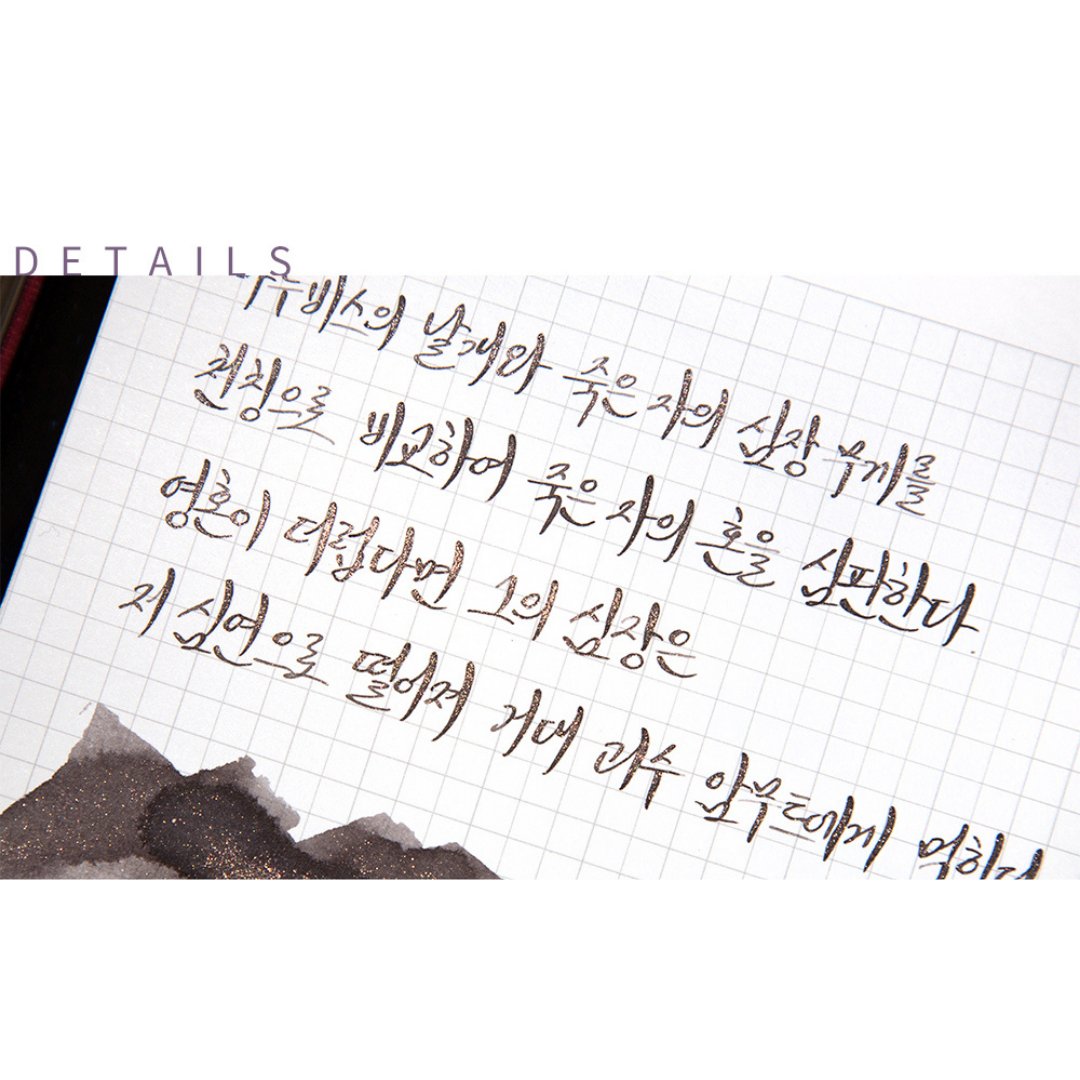 DETAILS
날개와 죽은 자의 심장 무게를
천칭으로 비교하여 죽은 자의 혼을 심판한다.
영혼이 더럽다면 그의 심장은
저 심연으로 떨어져 거대 괴수 암무트에게